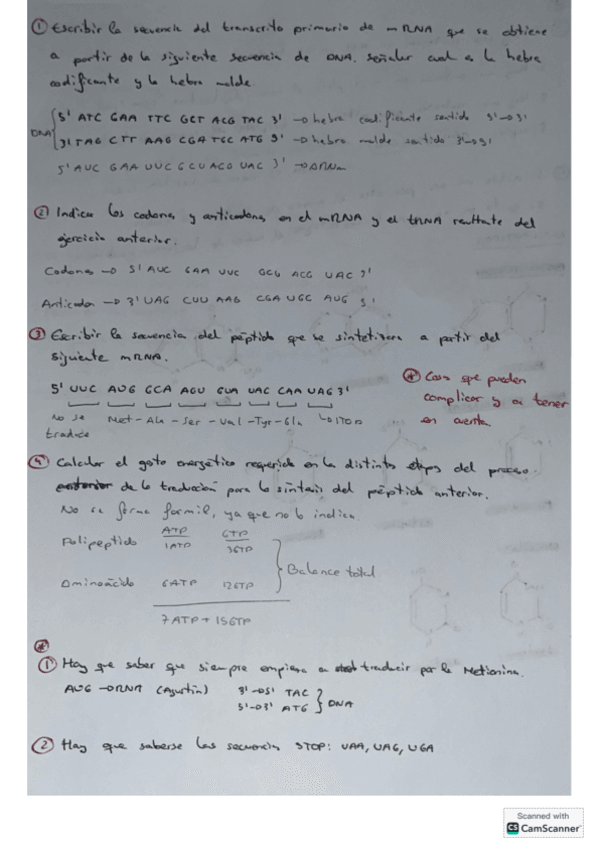 ① Escribir la secuencia del transcrito primario de mRNA que se obtiene
a partir de la siguiente secuencia de DNA. Señalar cual es la hebra
codificante y la hebra molde.
DNA { 5' ATC GAA TTC GCT ACG TAC 3' → hebra codificante sentido 5'→3'
3' TAG CTT AAG CGA TGC ATG 5' → hebra molde sentido 3'→5'
5' AUC GAA UUC GCU ACG UAC 3' → ARNm
② Indica los codones y anticodones en el mRNA y el tRNA resultante del
ejercicio anterior.
Codones → 5' AUC GAA UUC GCU ACG UAC 3'
Anticodon → 3' UAG CUU AAG CGA UGC AUG 5'
③ Escribir la secuencia del péptido que se sintetizara a partir del
siguiente mRNA.
5' UUC AUG GCA AGU GUA UAC CAA UAG 3'
No se traduce
Met - Ala - Ser - Val - Tyr - Gln
STOP
* Cosas que pueden
complicar y a tener
en cuenta
④ Calcular el gasto energético requerido en las distintas etapas del proceso
de la traducción para la síntesis del péptido anterior.
No se forma formil, ya que no lo indica.
ATP GTP
Polipeptido 1ATP 3GTP
Aminoácido 6ATP 12GTP
} Balance total
7ATP + 15GTP
*
① Hay que saber que siempre empieza a traducir por la Metionina.
AUG → RNA (Agustín) 3'→5' TAC
5'→3' ATG } DNA
② Hay que saberse las secuencias STOP: UAA, UAG, UGA
Scanned with
CS CamScanner